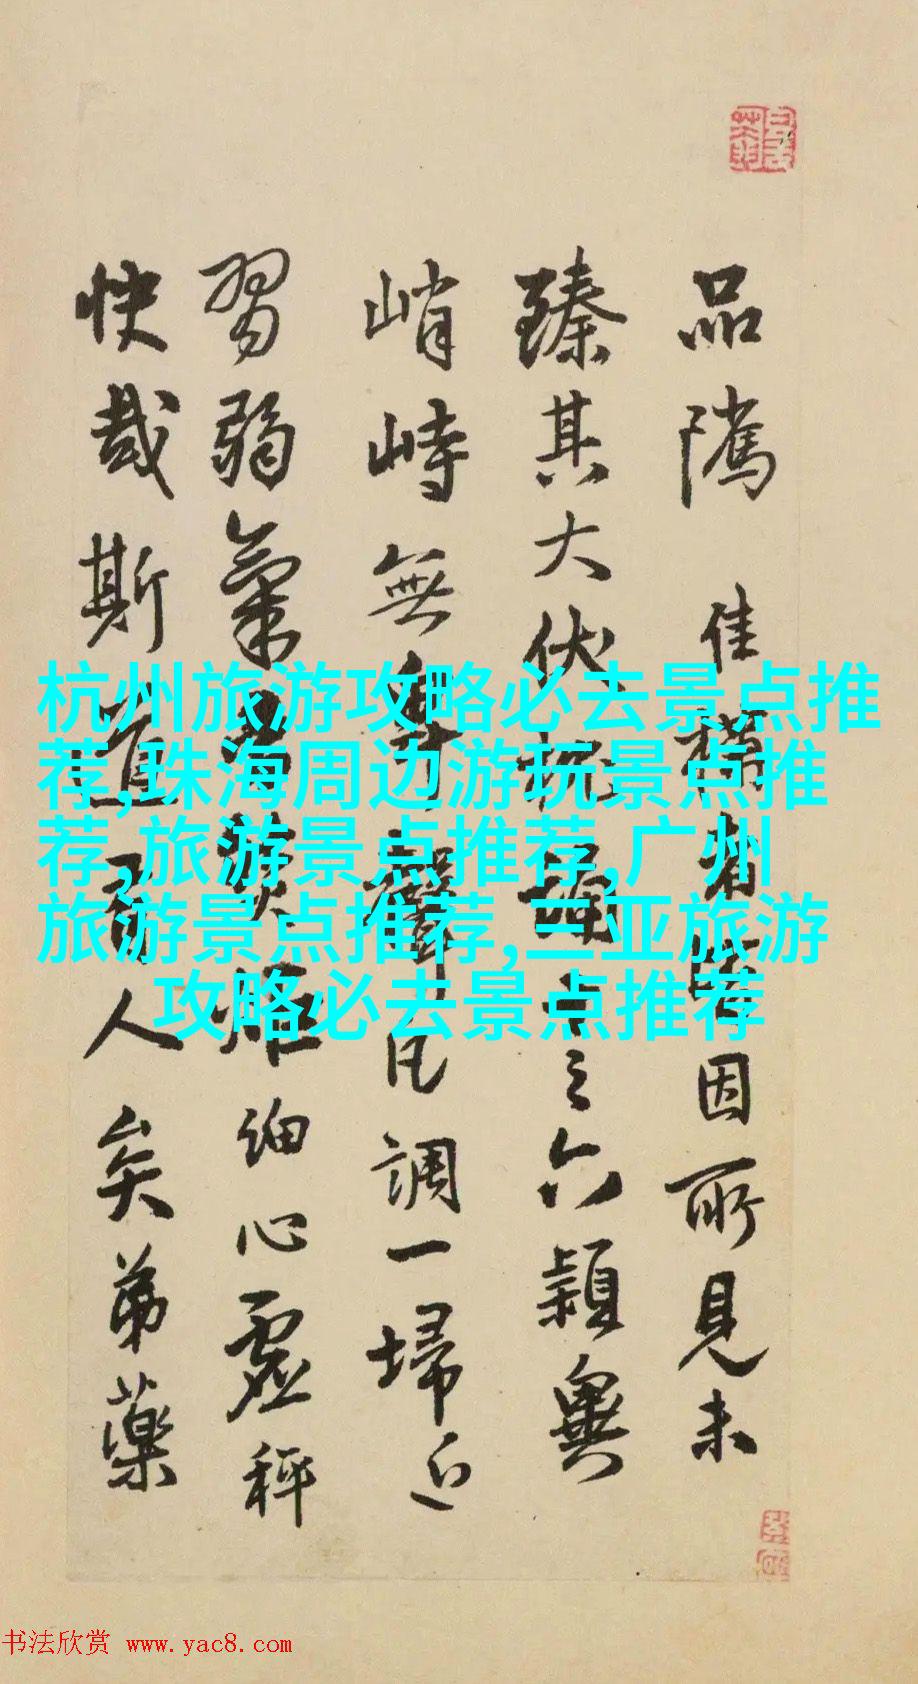 品隲佳構者皆因所見未
臻其大伏枕誦之六穎奧
峭峙無聲凡調一埽近
習弱氣細心虛秤
快哉斯道有人矣弟藥
杭州旅游攻略必去景点推
荐,珠海周边游玩景点推
荐,旅游景点推荐,广州
旅游景点推荐,三亚旅游
攻略必去景点推荐
书法欣赏 www.yac8.com